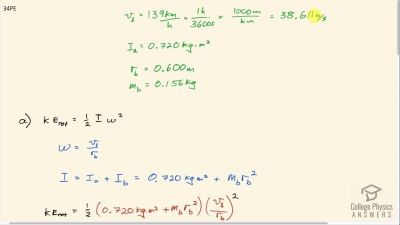 34PE
v_b = 139 km/h × 1h/3600s × 1000m/km = 38.611 m/s
I_a = 0.720 kg·m²
r_b = 0.600 m
m_b = 0.156 kg
a) KE_rot = 1/2 I ω²
ω = v_b/r_b
I = I_a + I_b = 0.720 kg·m² + m_b r_b²
KE_rot = 1/2 (0.720 kg·m² + m_b r_b²) (v_b/r_b)²
College Physics
ANSWERS